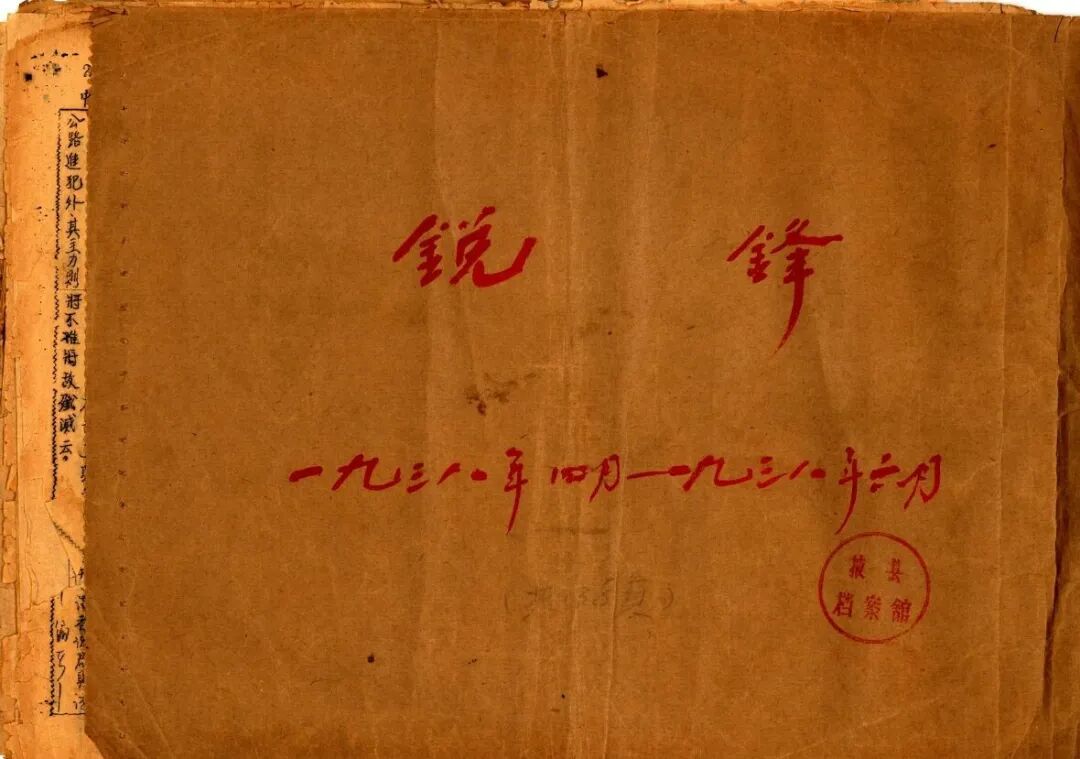 銳鋒
一九三八年四月—一九三八年六月
掖县
档案舘
公路進犯外其主力則將不難將敌殲滅云。